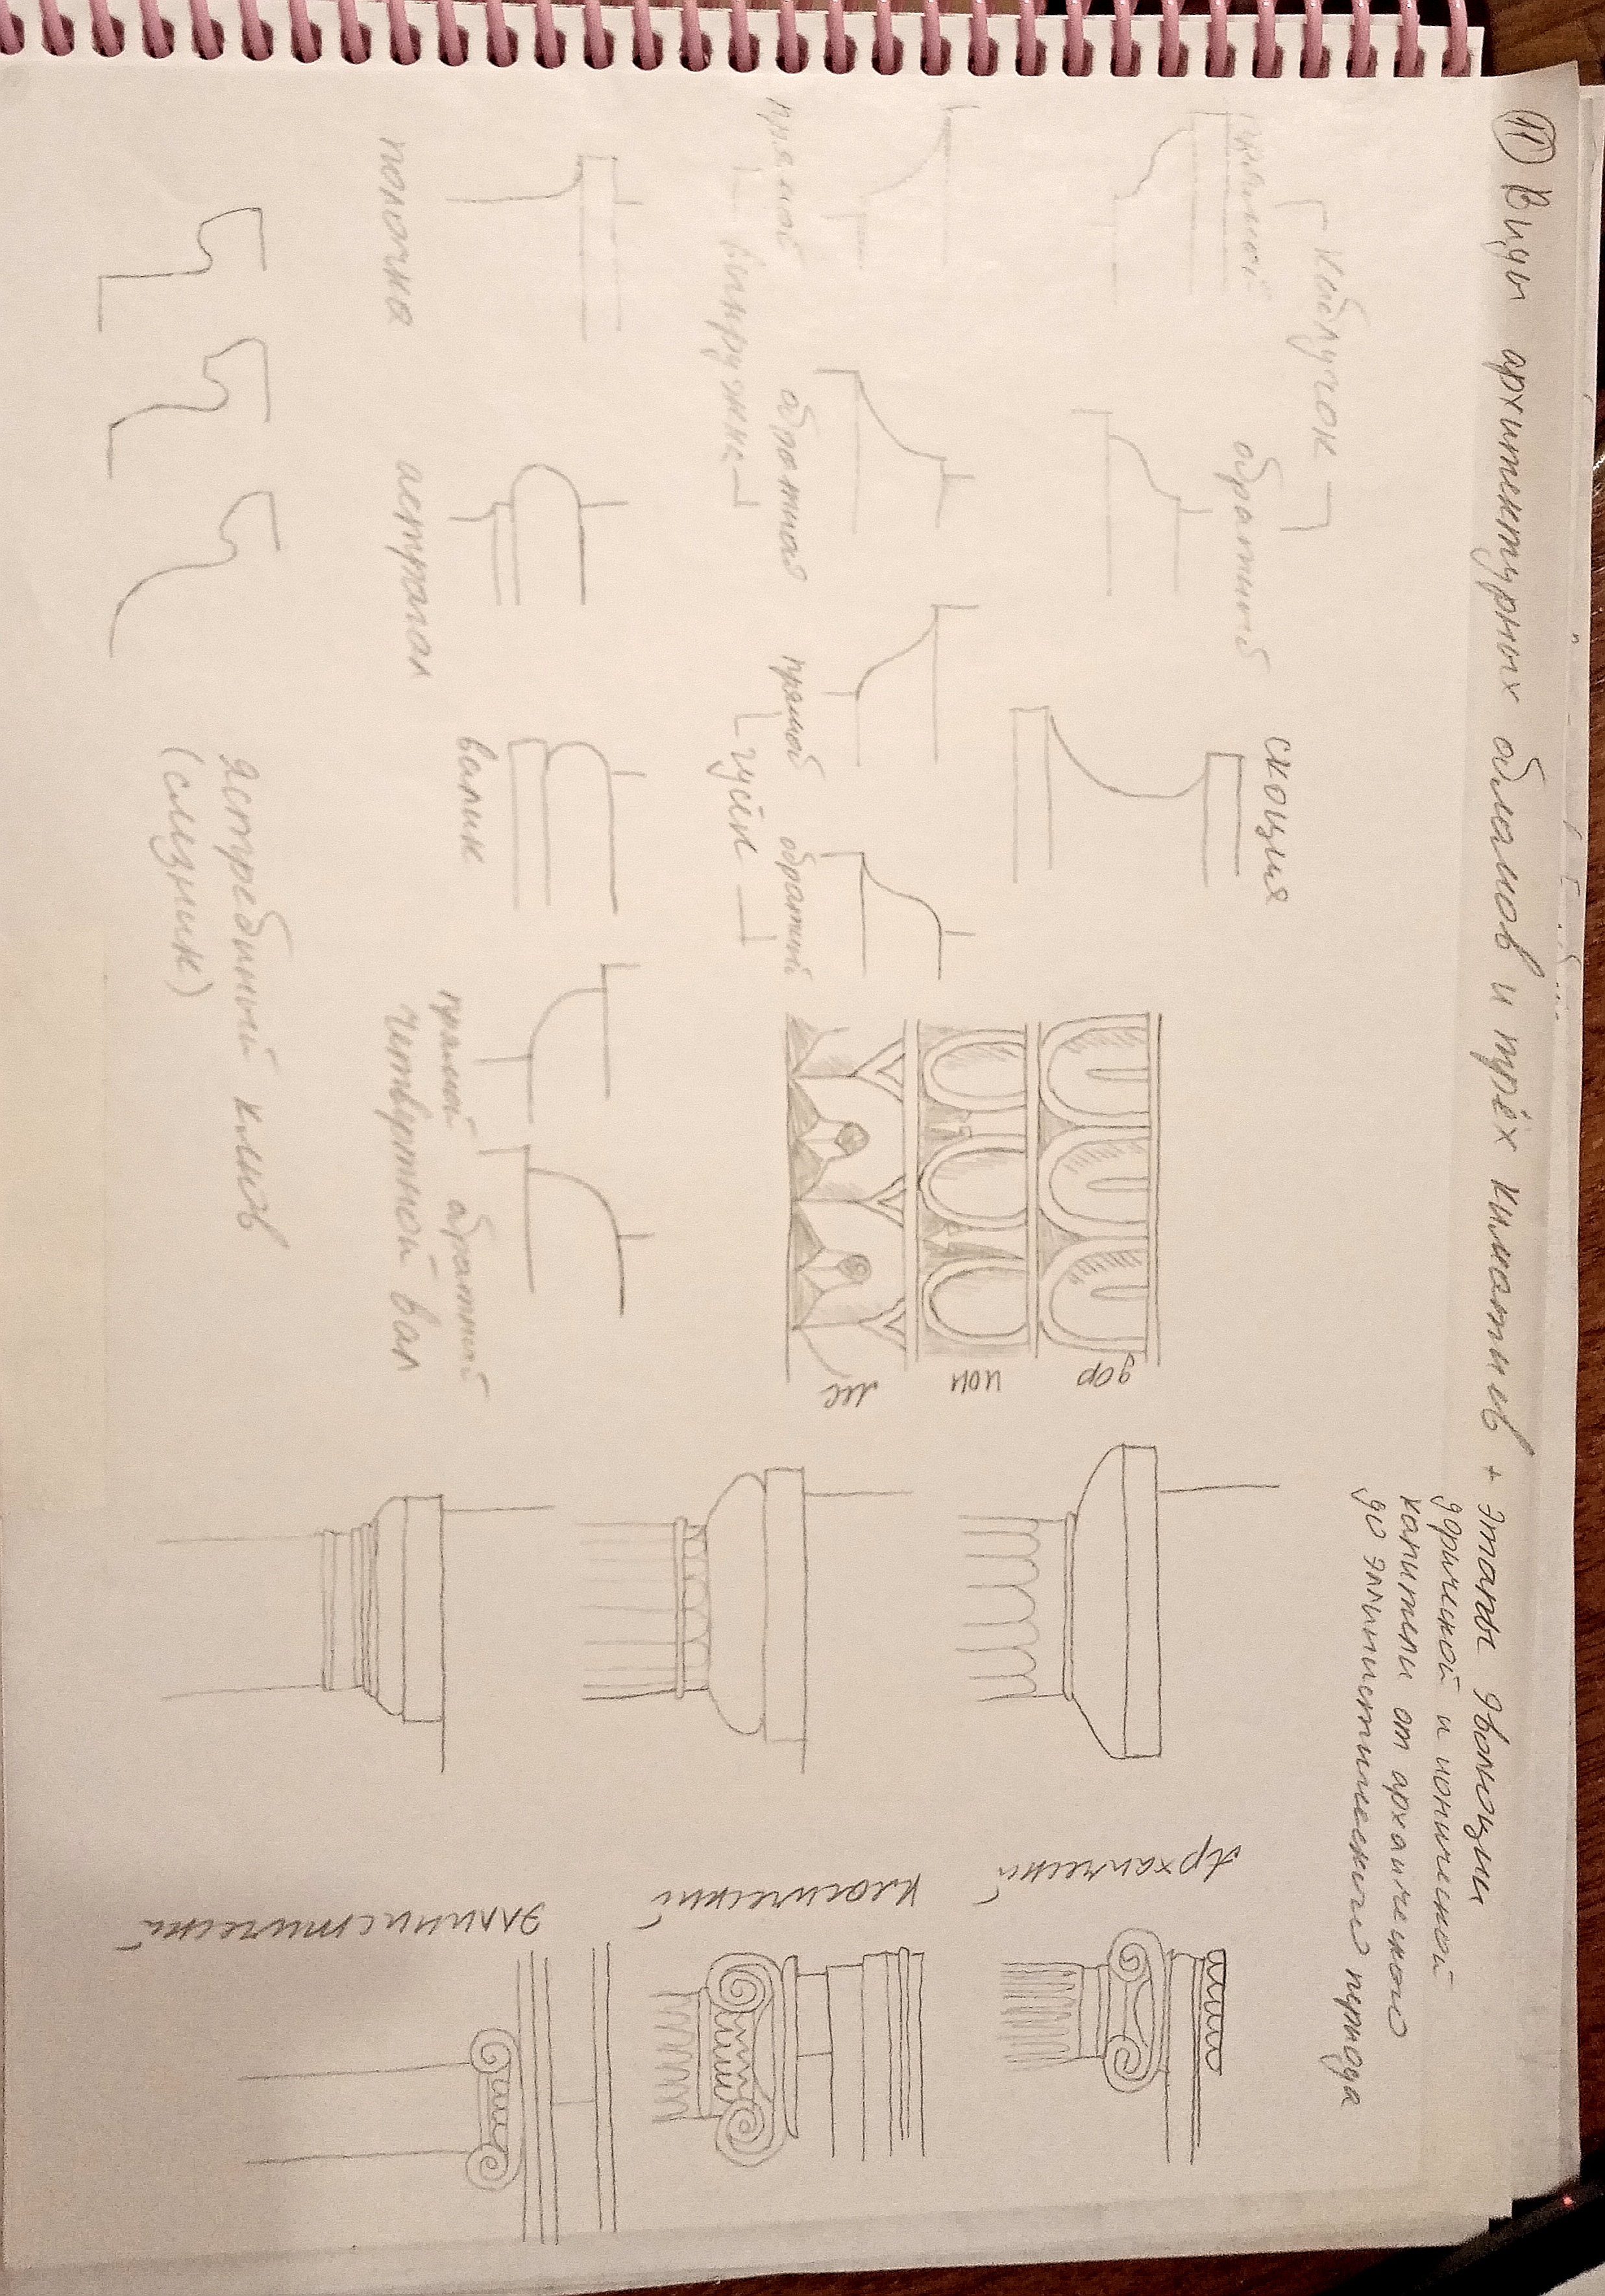 11 Виды архитектурных обломов и трёх киматиев + этапы эволюции
дорической и ионической
капители от архаического
до эллинистического периода
каблучок
прямой
обратный
скоция
прямая
обратная
прямой
обратный
выкружка
гусёк
дор
ион
лес
полочка
астрагал
валик
прямой
обратный
четвертной вал
ястребиный клюв
(слезник)
Архаический
классический
эллинистический